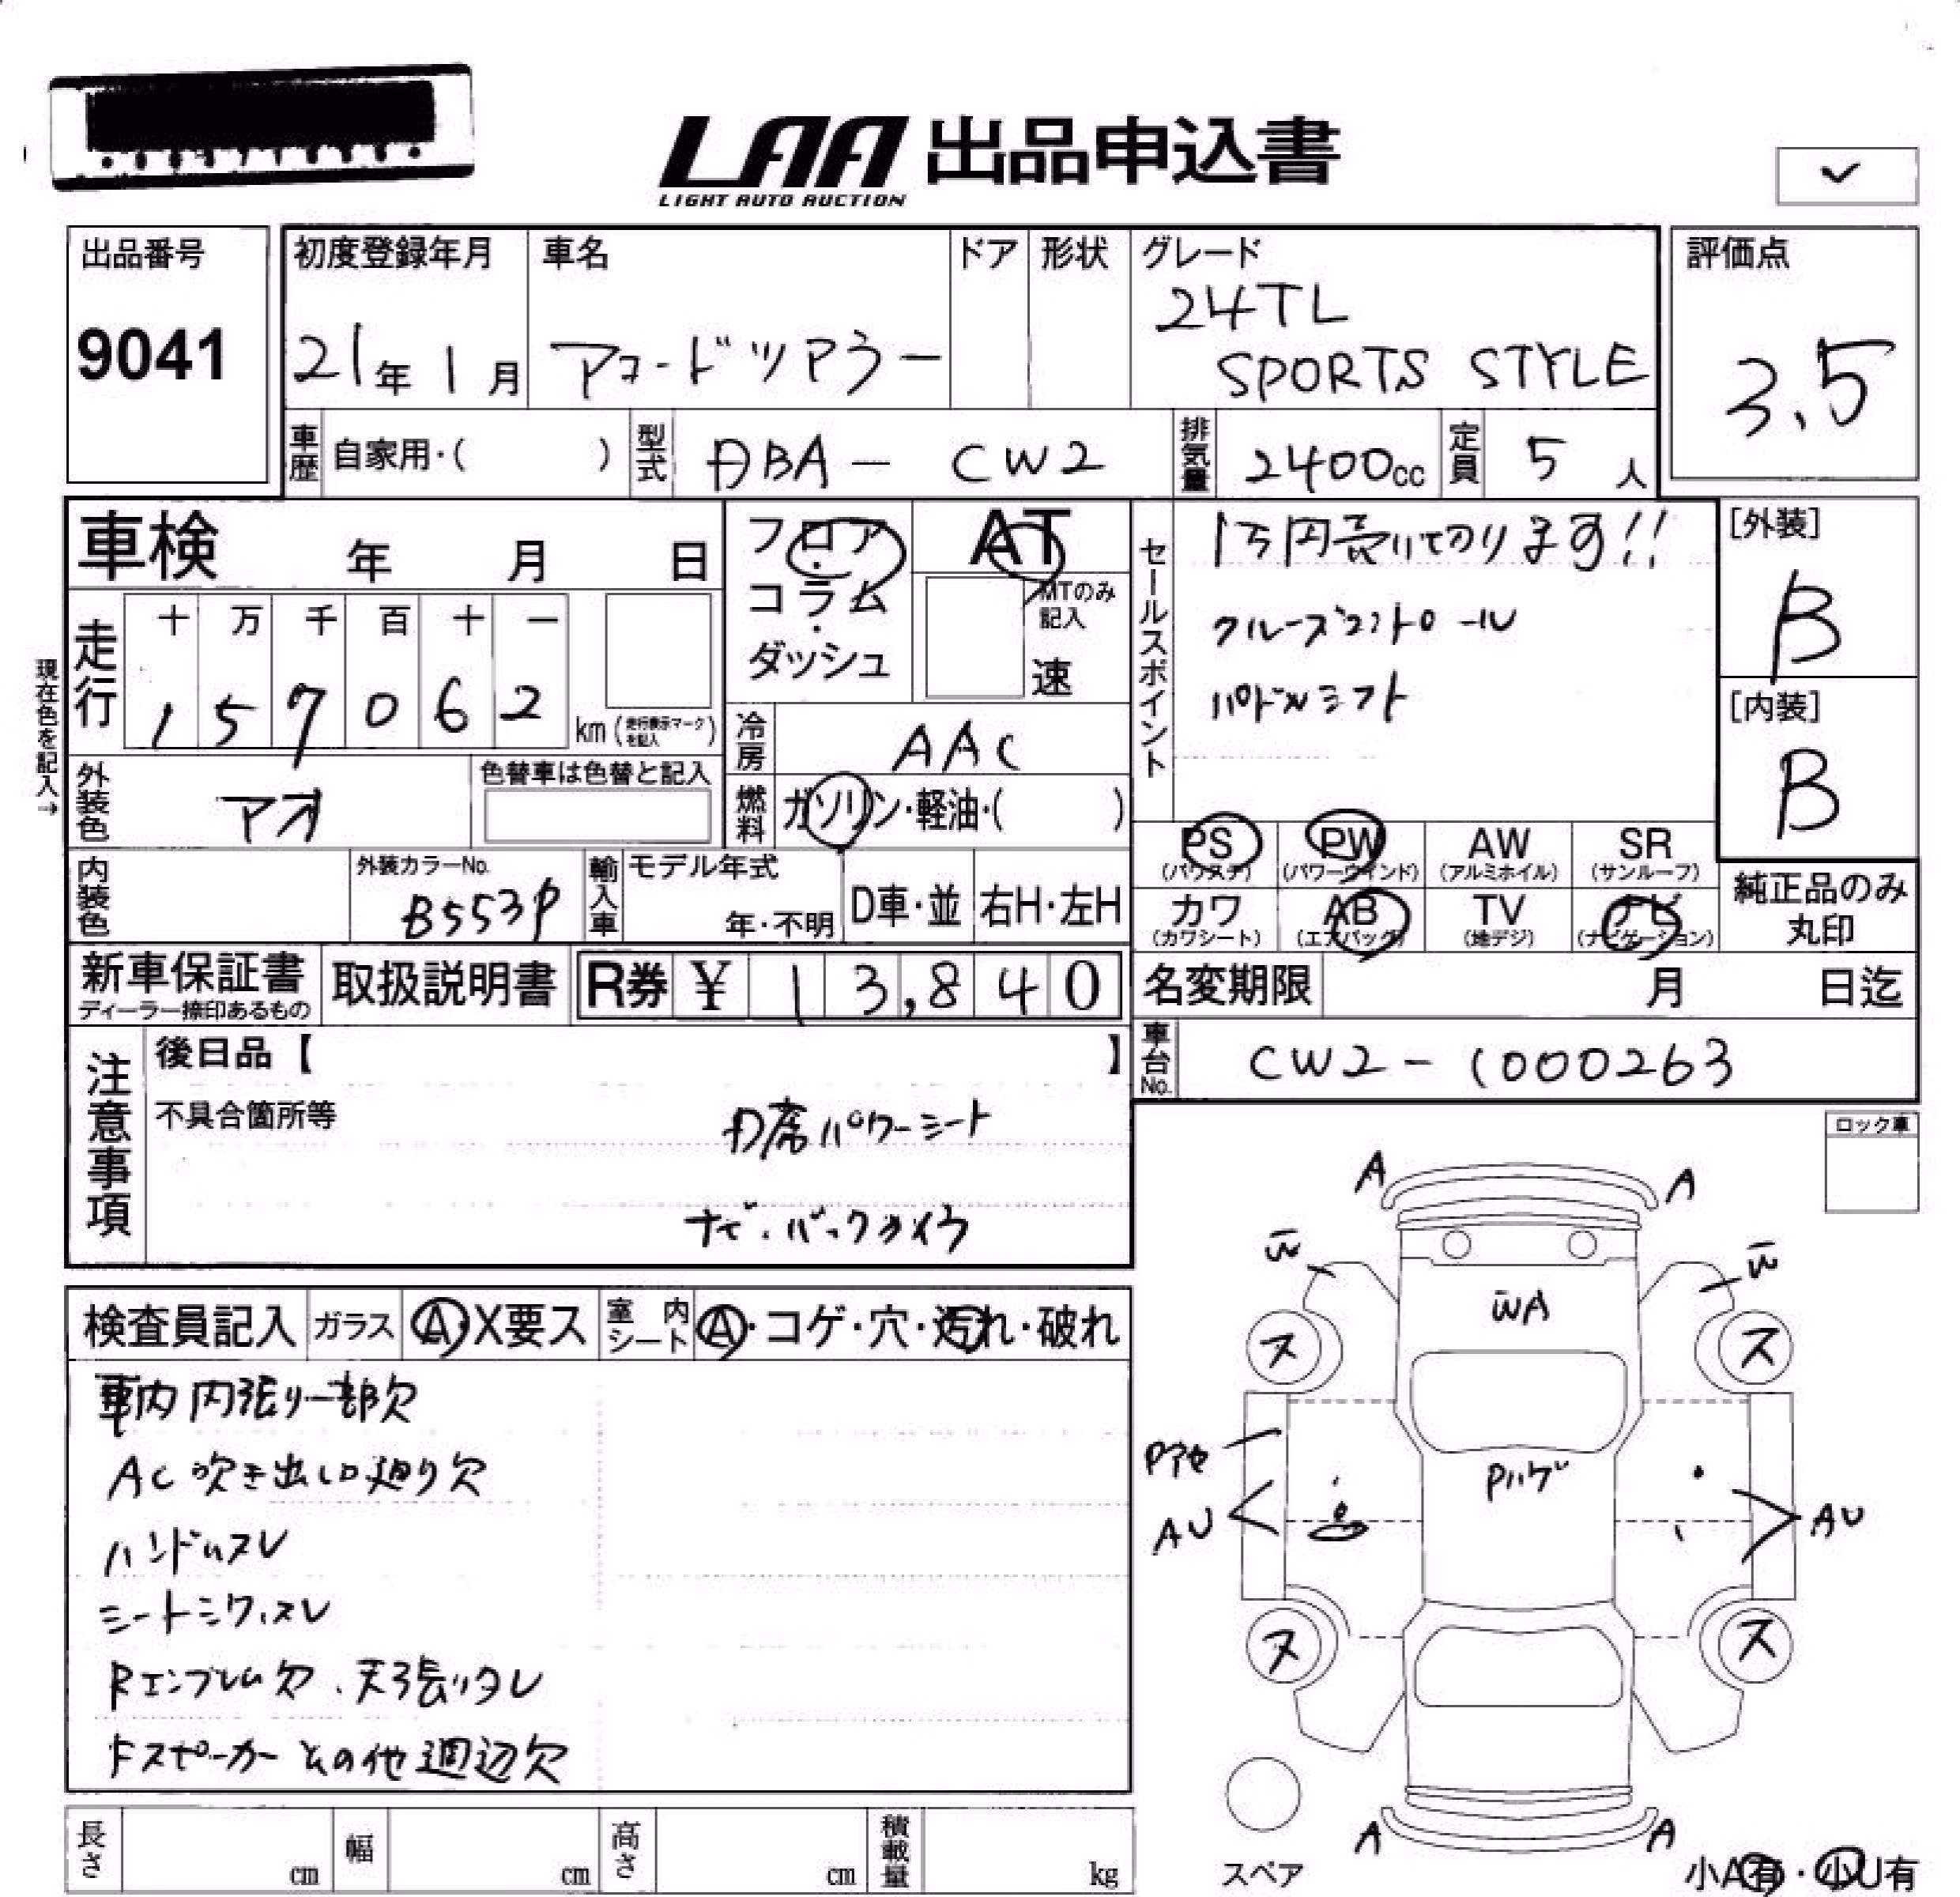 LAA 出品申込書
LIGHT AUTO AUCTION
出品番号
9041
初度登録年月
21年 1月
車名
アコードツアラー
ドア
形状
グレード
24TL
SPORTS STYLE
評価点
3.5
車歴
自家用・( )
型式
DBA - CW2
排気量
2400cc
定員
5人
車検 年 月 日
フロア・
コラム・
ダッシュ
AT
MTのみ
記入
速
セールスポイント
1万円売り切ります!!
クルーズコントロール
パドルシフト
[外装]
B
[内装]
B
現在色を記入→
走行
十 万 千 百 十 一
1 5 7 0 6 2
km(走行表示マークを記入)
冷房
AAC
外装色
アオ
色替車は色替と記入
燃料
ガソリン・軽油・( )
PS
(パワステ)
PW
(パワーウインド)
AW
(アルミホイル)
SR
(サンルーフ)
カワ
(カワシート)
AB
(エアバッグ)
TV
(地デジ)
ナビ
(ナビゲーション)
純正品のみ
丸印
内装色
外装カラーNo.
B553P
輸入車
モデル年式
年・不明
D車・並
右H・左H
新車保証書
ディーラー捺印あるもの
取扱説明書
R券 ¥ 13,840
名変期限 月 日迄
車台No.
CW2-1000263
注意事項
後日品【 】
不具合箇所等
D席パワーシート
ナビ・バックカイラ
ロック車
検査員記入
ガラス
A・X要ス
室内
シート
A・コゲ・穴・汚れ・破れ
車内 内張り一部欠
AC吹き出し口廻り欠
ハンドルスレ
シートシワ、スレ
Rエンブレム欠、天張りタレ
Fスピーカーその他週辺欠
A
A
W
W
WA
ス
ス
Pハゲ
AU
AU
ス
ス
A
A
スペア
小A有・小U有
長さ
cm
幅
cm
高さ
cm
積載量
kg